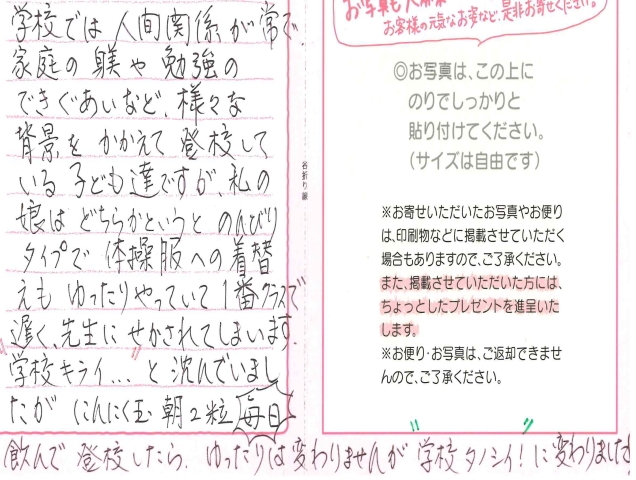 学校では人間関係が常で
家庭の躾や勉強の
できぐあいなど、様々な
背景をかかえて登校して
いる子ども達ですが、私の
娘はどちらかというとのんびり
タイプで体操服への着替
えもゆったりやっていて1番クラスで
遅く、先生にせかされてしまいます。
学校キライ...と沈んでいまし
たがにんにく玉朝2粒毎日
飲んで登校したら、ゆったりは変わりませんが学校タノシイ!に変わりました
谷折り線
お写真も大募集
お客様の元気なお姿など、是非お寄せください。
◎お写真は、この上に
のりでしっかりと
貼り付けてください。
(サイズは自由です)
※お寄せいただいたお写真やお便り
は、印刷物などに掲載させていただく
場合もありますので、ご了承ください。
また、掲載させていただいた方には、
ちょっとしたプレゼントを進呈いた
します。
※お便り・お写真は、ご返却できませ
んので、ご了承ください。